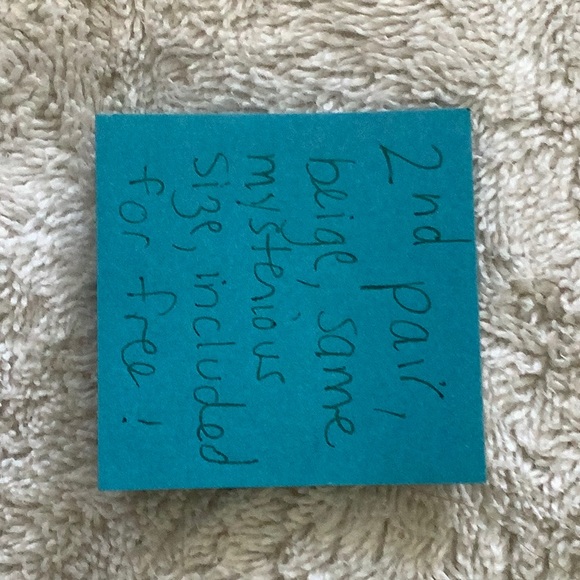 2nd pair,
beige, same
mysterious
size, included
for free!